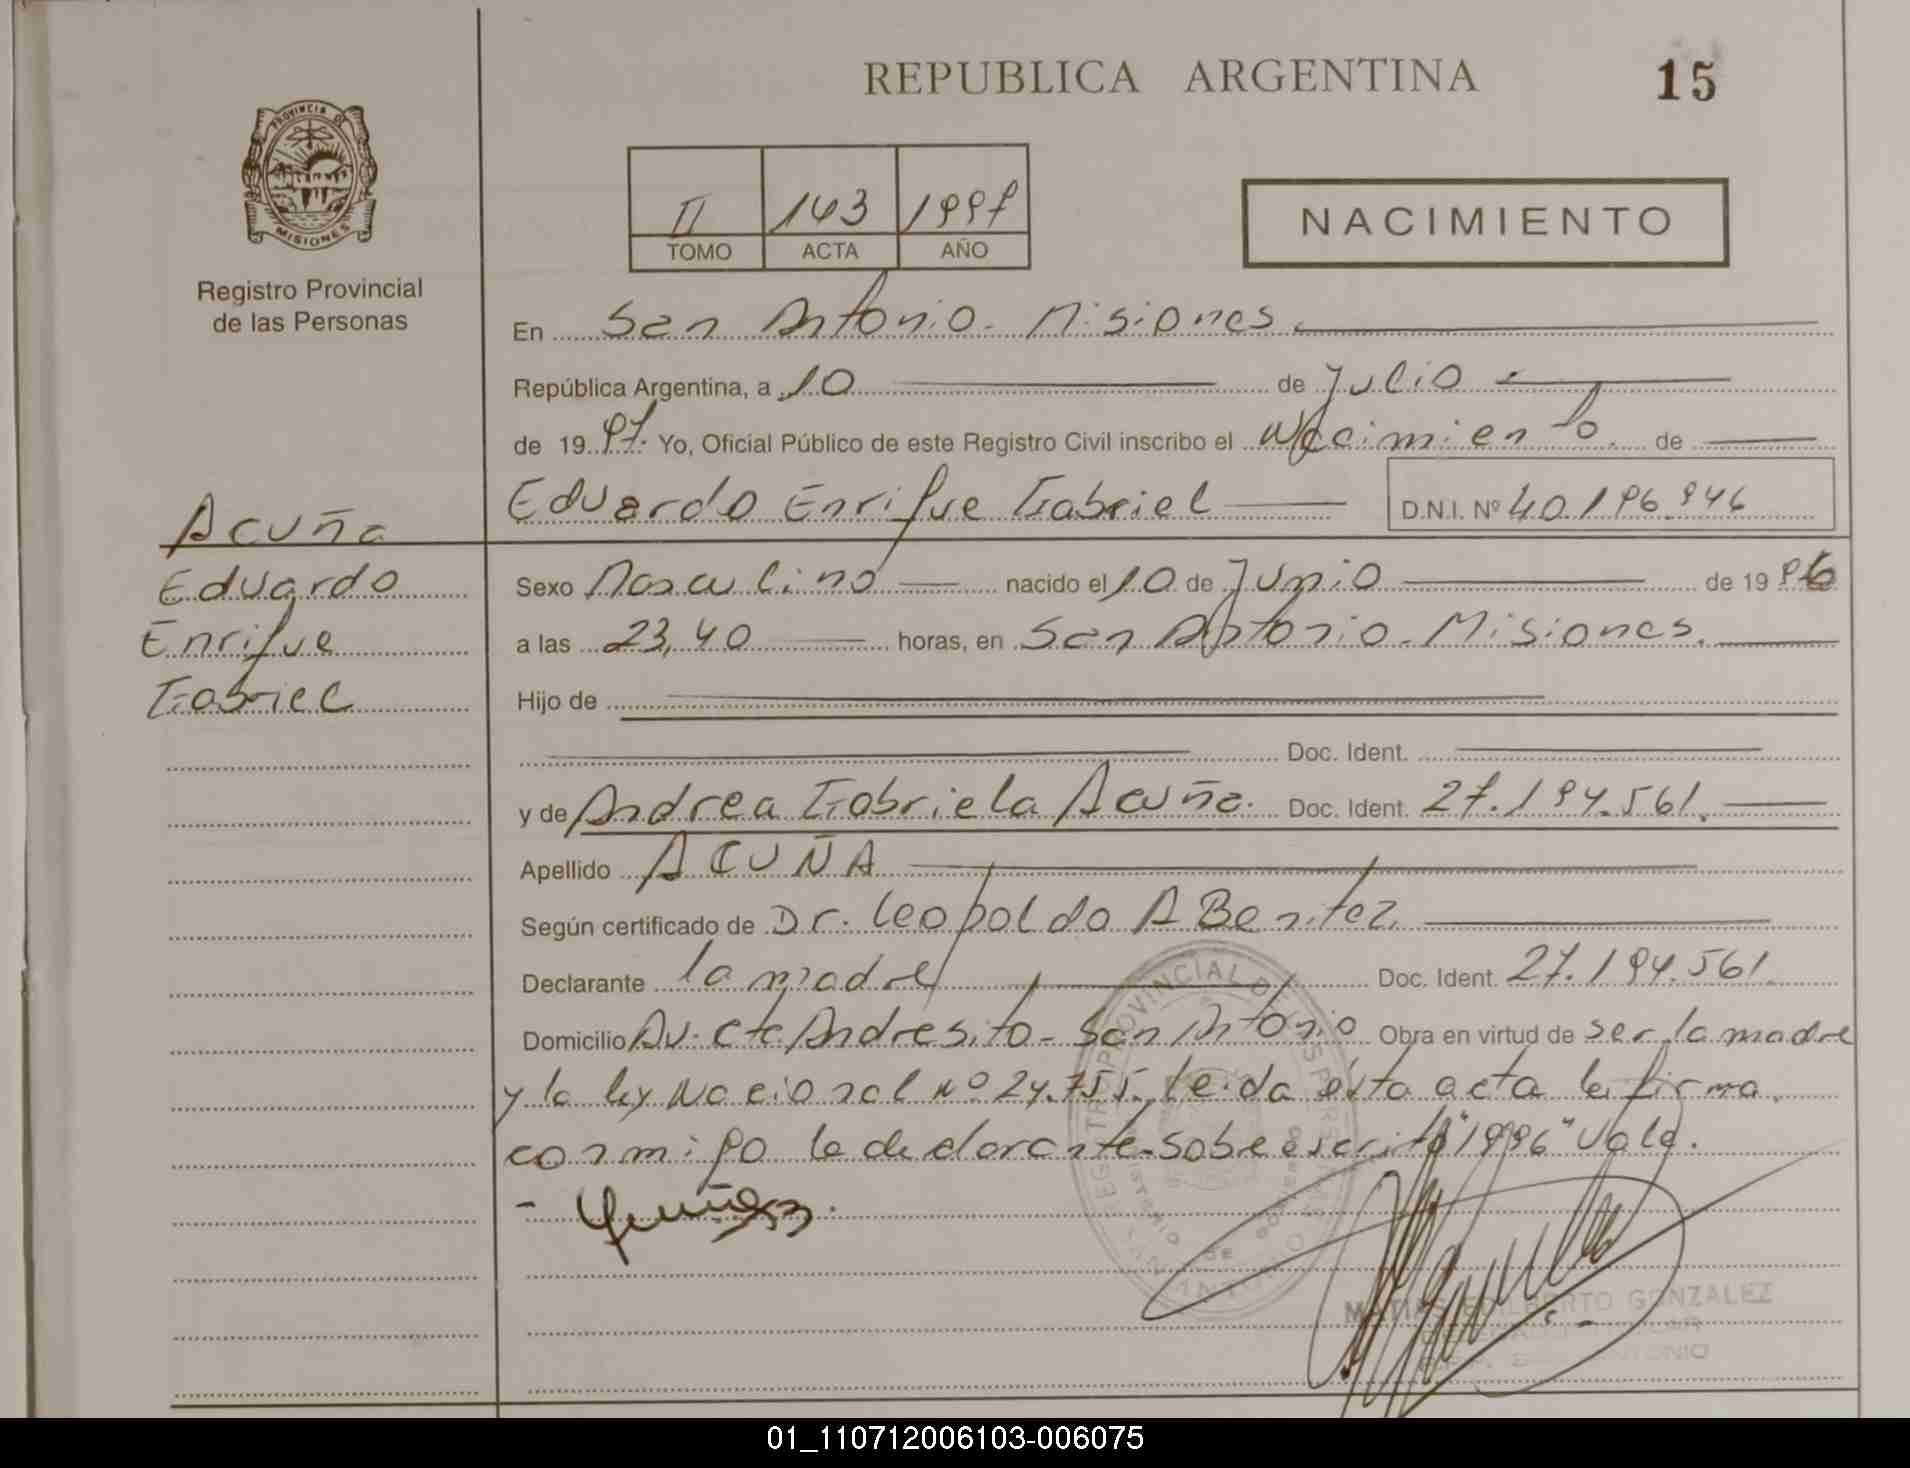 REPUBLICA ARGENTINA
15
PROVINCIA DE
MISIONES
Registro Provincial
de las Personas
II 143 1997
TOMO ACTA AÑO
NACIMIENTO
En San Antonio - Misiones.
República Argentina, a 10 de Julio
de 19 97. Yo, Oficial Público de este Registro Civil inscribo el Nacimiento. de
Eduardo Enrique Gabriel D.N.I. Nº 40.196.946
Acuña
Eduardo
Enrique
Gabriel
Sexo Masculino nacido el 10 de Junio de 19 96
a las 23,40 horas, en San Antonio - Misiones.
Hijo de
Doc. Ident.
y de Andrea Gabriela Acuña. Doc. Ident. 27.194.561.
Apellido ACUÑA
Según certificado de Dr. Leopoldo A Benitez
Declarante la madre Doc. Ident. 27.194.561.
Domicilio Av. Cte Andresito - San Antonio Obra en virtud de ser la madre
y la ley Nacional nº 24.755. leida ésta acta la firma
conmigo la declarante - Sobre escrito "1996" Vale.
REGISTRO PROVINCIAL DE LAS PERSONAS
MINISTERIO DE GOBIERNO
SAN ANTONIO
MATIAS EDILBERTO GONZALEZ
01_110712006103-006075